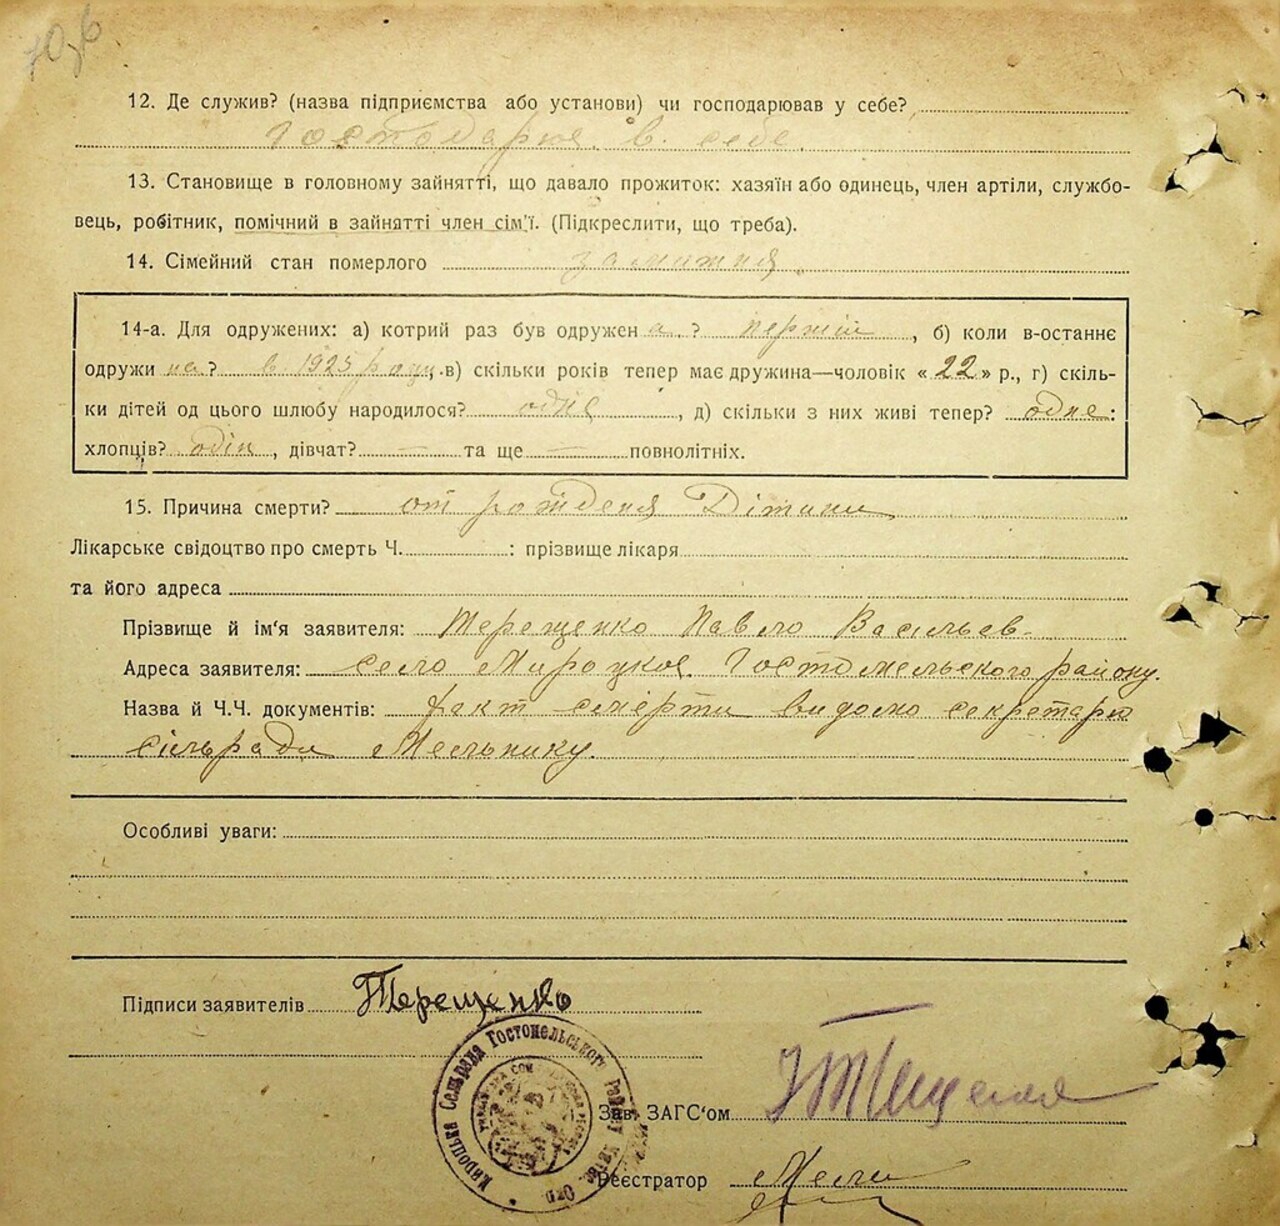 12. Де служив? (назва підприємства або установи) чи господарював у себе?
Гостодарює в себе
13. Становище в головному зайнятті, що давало прожиток: хазяїн або одинець, член артіли, службо-
вець, робітник, помічний в зайнятті член сім'ї. (Підкреслити, що треба).
14. Сімейний стан померлого замижня
14-а. Для одружених: а) котрий раз був одружен а ? перший, б) коли в-останнє
одружи на? в 1925 році, в) скільки років тепер має дружина—чоловік «22» р., г) скіль-
ки дітей од цього шлюбу народилося? одне, д) скільки з них живі тепер? одне:
хлопців? одін, дівчат? — та ще — повнолітніх.
15. Причина смерти? от рождения Дітини
Лікарське свідоцтво про смерть Ч. : прізвище лікаря
та його адреса
Прізвище й ім'я заявителя: Терещенко Павло Васільев-
Адреса заявителя: село Мироцкое Гостомельского району.
Назва й Ч.Ч. документів: факт смерти видомо секретарю
сільради Мельнику.
Особливі уваги:
Підписи заявителів Терещенко
Мироцька Сельрада Гостомельського Району Київс. Окр.
Зав. ЗАГС'ом
Реєстратор